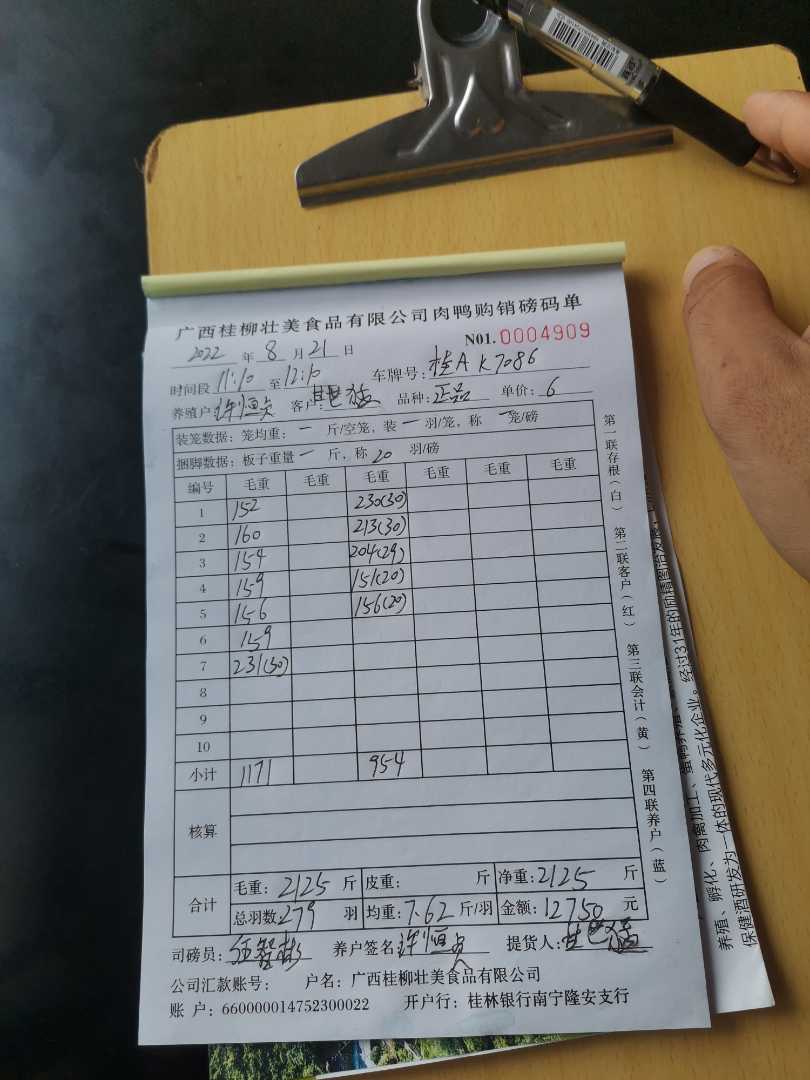 广西桂柳壮美食品有限公司肉鸭购销磅码单
2022 年 8 月 21 日 N01.0004909
时间段 11:10 至 12:10 车牌号: 桂A K7086
养殖户 许恒贞 客户: 品种: 正品 单价: 6
装笼数据: 笼均重: 一 斤/空笼, 装 一 羽/笼, 称 一 笼/磅
捆脚数据: 板子重量 一 斤, 称 20 羽/磅
编号 毛重 毛重 毛重 毛重 毛重 毛重
1 152 230(30)
2 160 213(30)
3 154 204(29)
4 159 151(20)
5 156 156(20)
6 159
7 231(30)
8
9
10
小计 1171 954
核算
合计 毛重: 2125 斤 皮重: 斤 净重: 2125 斤
总羽数 279 羽 均重: 7.62 斤/羽 金额: 12750 元
司磅员: 养户签名: 许恒贞 提货人:
公司汇款账号: 户名: 广西桂柳壮美食品有限公司
账 户: 660000014752300022 开户行: 桂林银行南宁隆安支行
第一联存根(白) 第二联客户(红) 第三联会计(黄) 第四联养户(蓝)
养殖、孵化、肉禽加工、蛋鸭养殖、
保健酒研发为一体的现代多元化企业。经过31年的